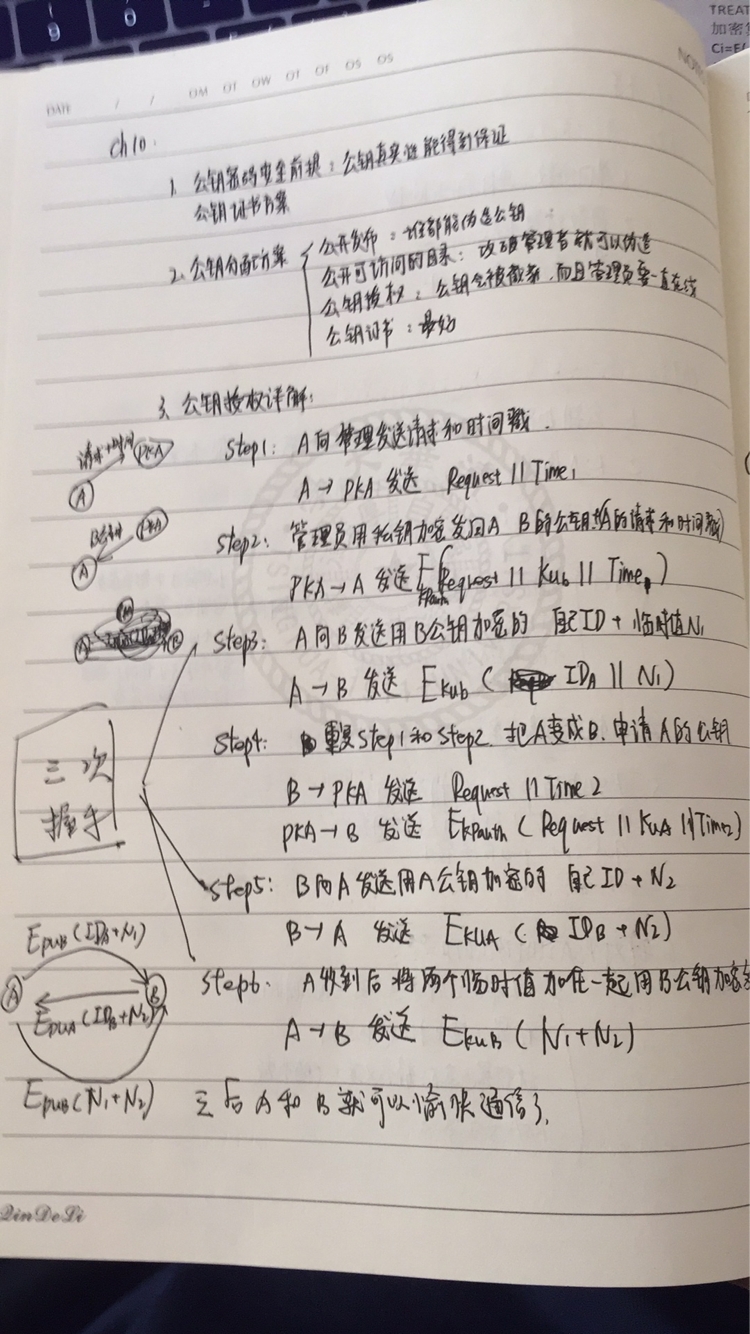 TREAT
加密
Ci=E(
DATE / / OM OT OW OT OF OS OS
NO
Ch10.
1. 公钥密码安全前提：公钥真实性能得到保证
公钥证书方案
2. 公钥分配方案
公开发布：谁都能伪造公钥
公开可访问的目录：攻破管理者就可以伪造
公钥授权：公钥会被截获，而且管理员要一直在线
公钥证书：最好
3. 公钥授权详解：
请求+时间
PKA
A
Step1: A向管理发送请求和时间戳.
A→PKA 发送 Request || Time1
PKA
A
Step2: 管理员用私钥加密发回A B的公钥+(A的请求和时间戳)
PKA→A 发送 EKPauth(Request || Kub || Time1)
A
B
Step3: A向B发送用B公钥加密的 自己ID + 临时值N1
A→B 发送 EKub ( IDA || N1)
三次
握手
Step4: 重复Step1和Step2. 把A变成B. 申请A的公钥
B→PKA 发送 Request || Time2
PKA→B 发送 EKPauth (Request || KUA || Time2)
Step5: B向A发送用A公钥加密的 自己ID + N2
B→A 发送 EKUA ( IDB + N2)
EPUB(IDA+N1)
A
B
EPUA(IDB+N2)
EPUB(N1+N2)
Step6. A收到后将两个临时值加在一起用B公钥加密
A→B 发送 EKUB (N1+N2)
之后A和B就可以愉快通信了.
QinDeLi